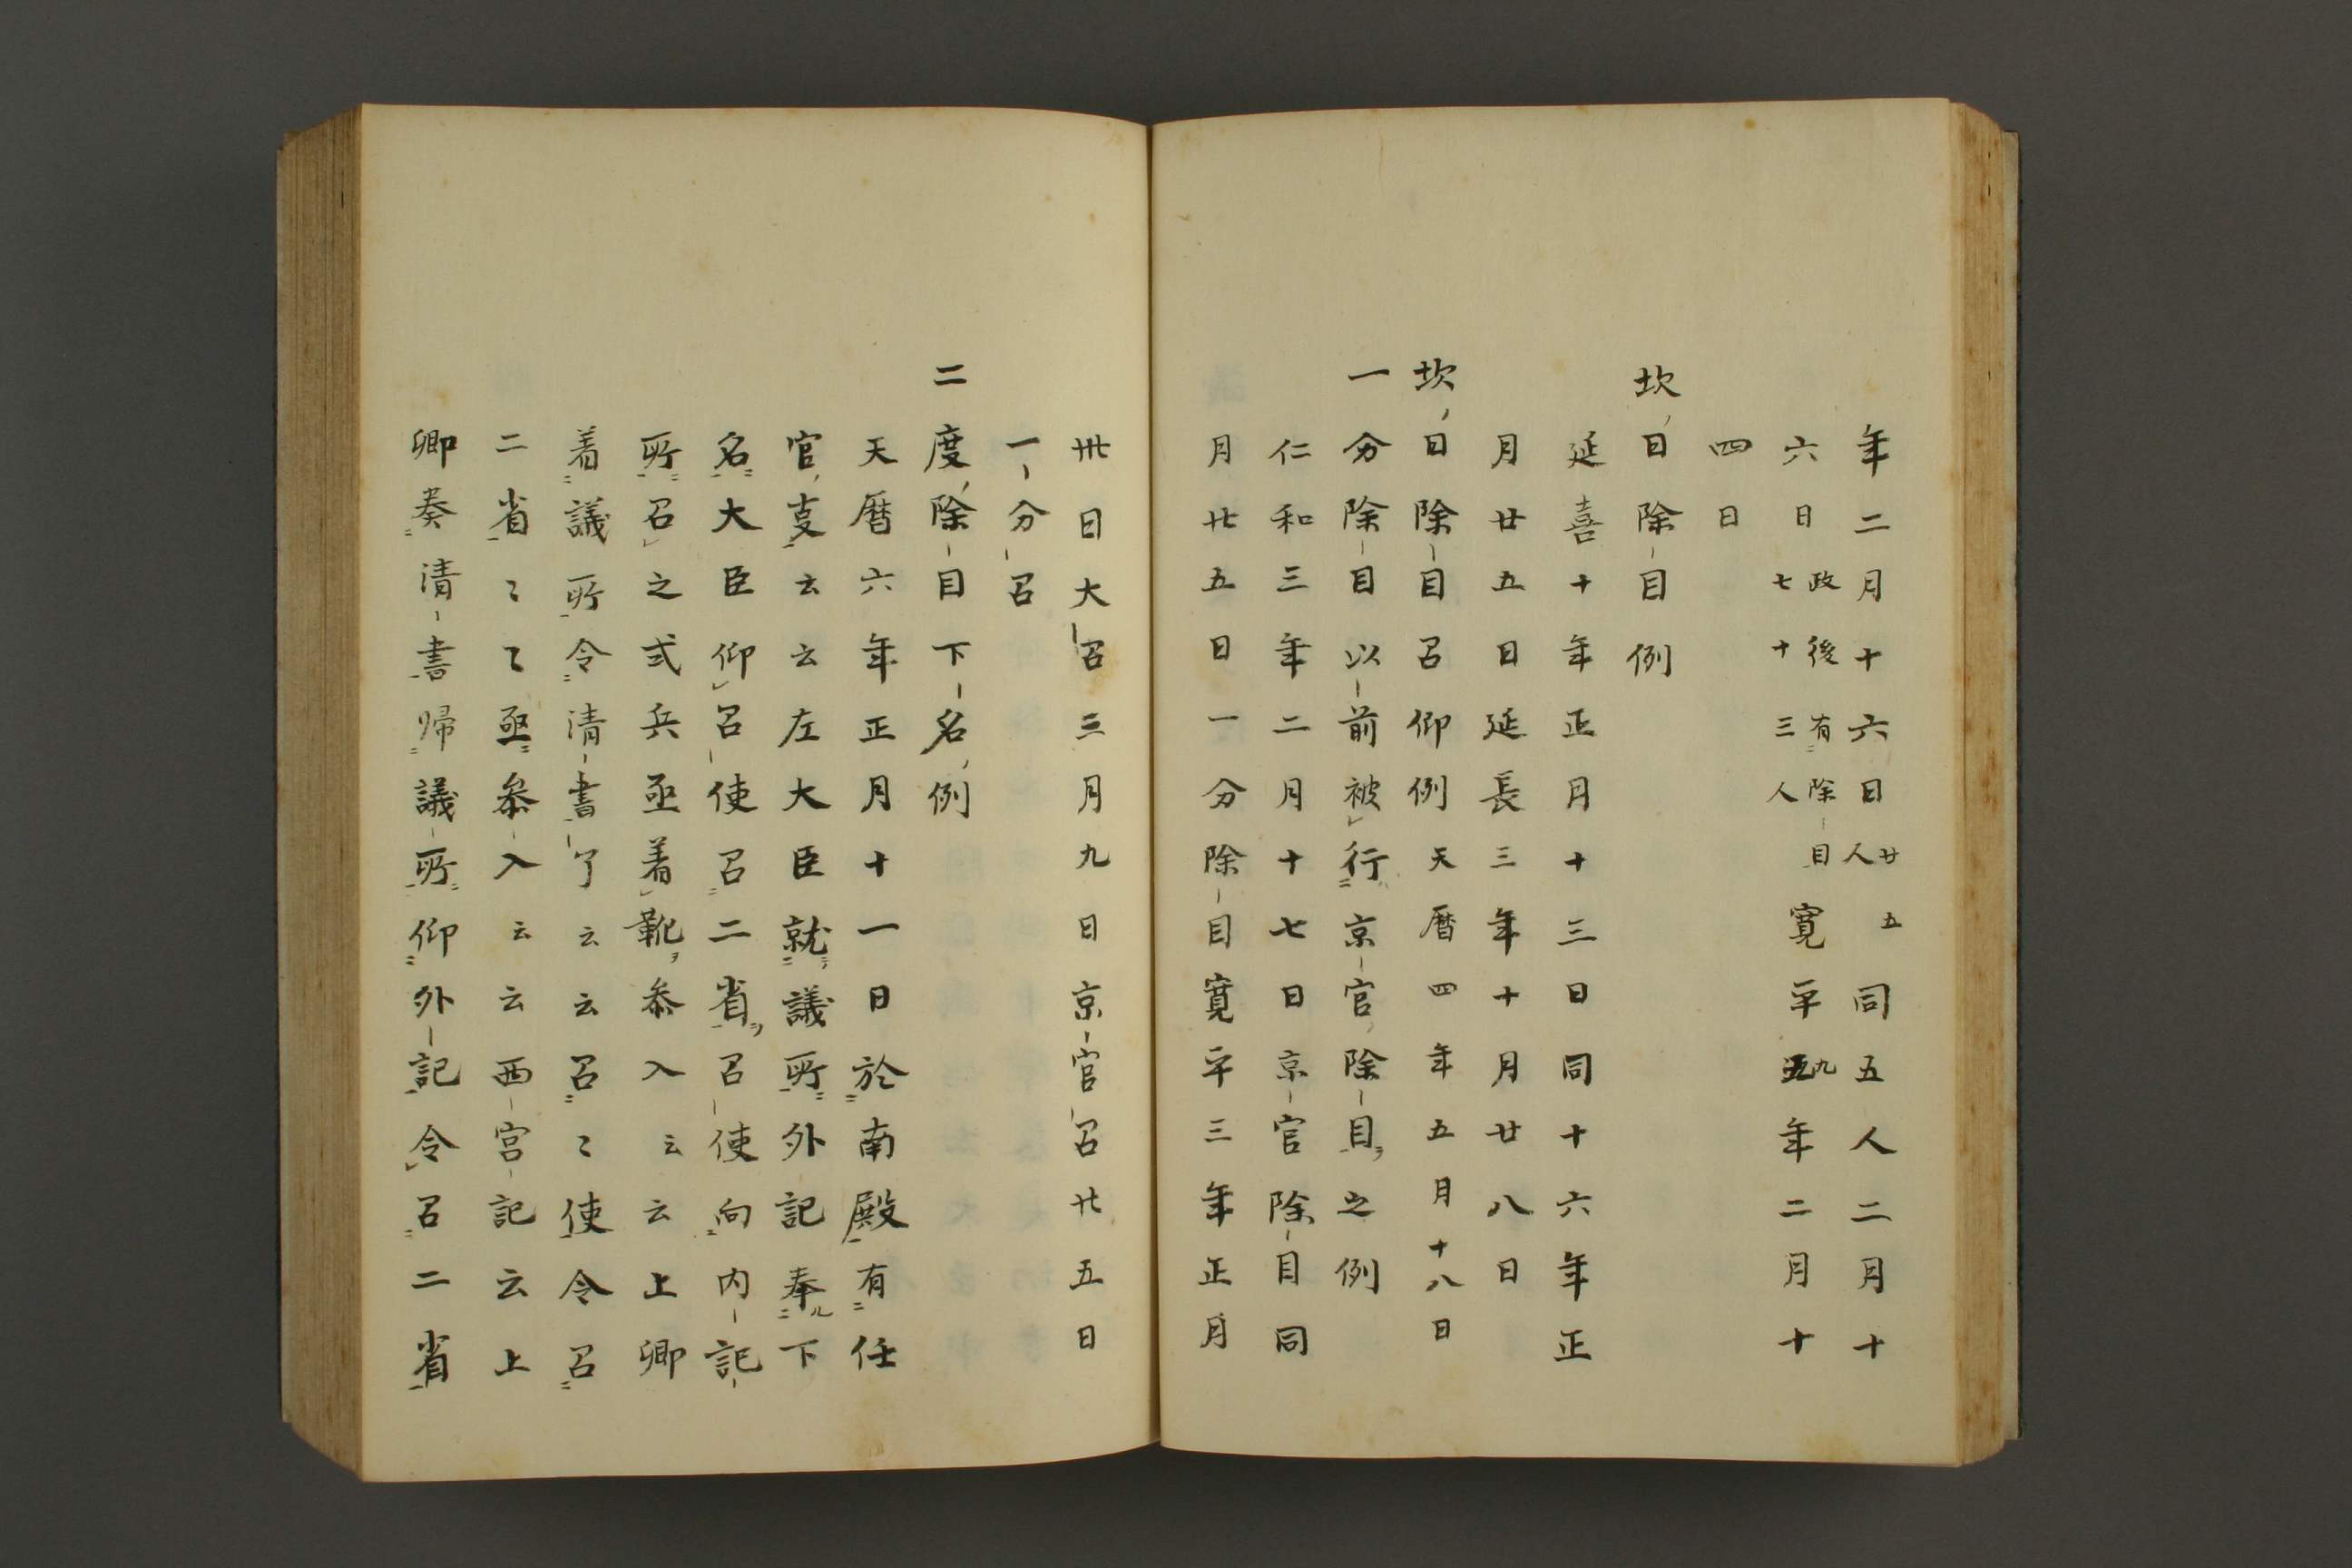 年二月十六日廿五人同五人二月十
六日政後有除目七十三人寛平五九年二月十
四日
坎日除目例
延喜十年正月十三日同十六年正
月廿五日延長三年十月廿八日
坎日除目召仰例天暦四年五月十八日
一分除目以前被行京官除目之例
仁和三年二月十七日京官除目同
月廿五日一分除目寛平三年正月
卅日大召三月九日京官召廿五日
一分召
二度除目下名例
天暦六年正月十一日於南殿有任
官叓云云左大臣就議所外記奉ル下
名大臣仰召使召二省召使向内記
所召之式兵丞着靴参入云云上卿
着議所令清書了云云召〻使令召
二省〻〻丞参入云云西宮記云上
卿奏清書帰議所仰外記令召二省